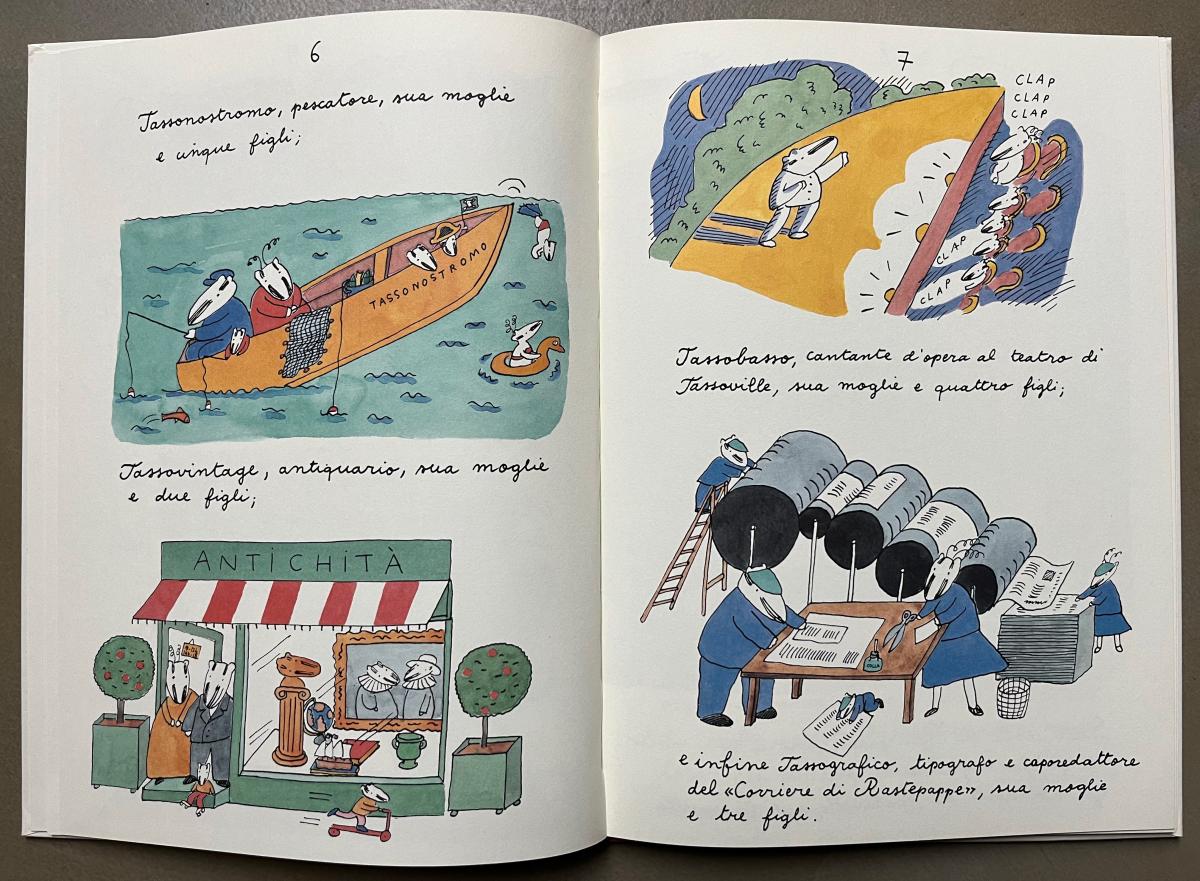 6
Tassonostromo, pescatore, sua moglie
e cinque figli;
TASSONOSTROMO
Tassovintage, antiquario, sua moglie
e due figli;
ANTICHITÀ
7
CLAP
CLAP
CLAP
CLAP
CLAP
Tassobasso, cantante d'opera al teatro di
Tassoville, sua moglie e quattro figli;
COLLA
e infine Tassografico, tipografo e caporedattore
del «Corriere di Rastepappe», sua moglie
e tre figli.